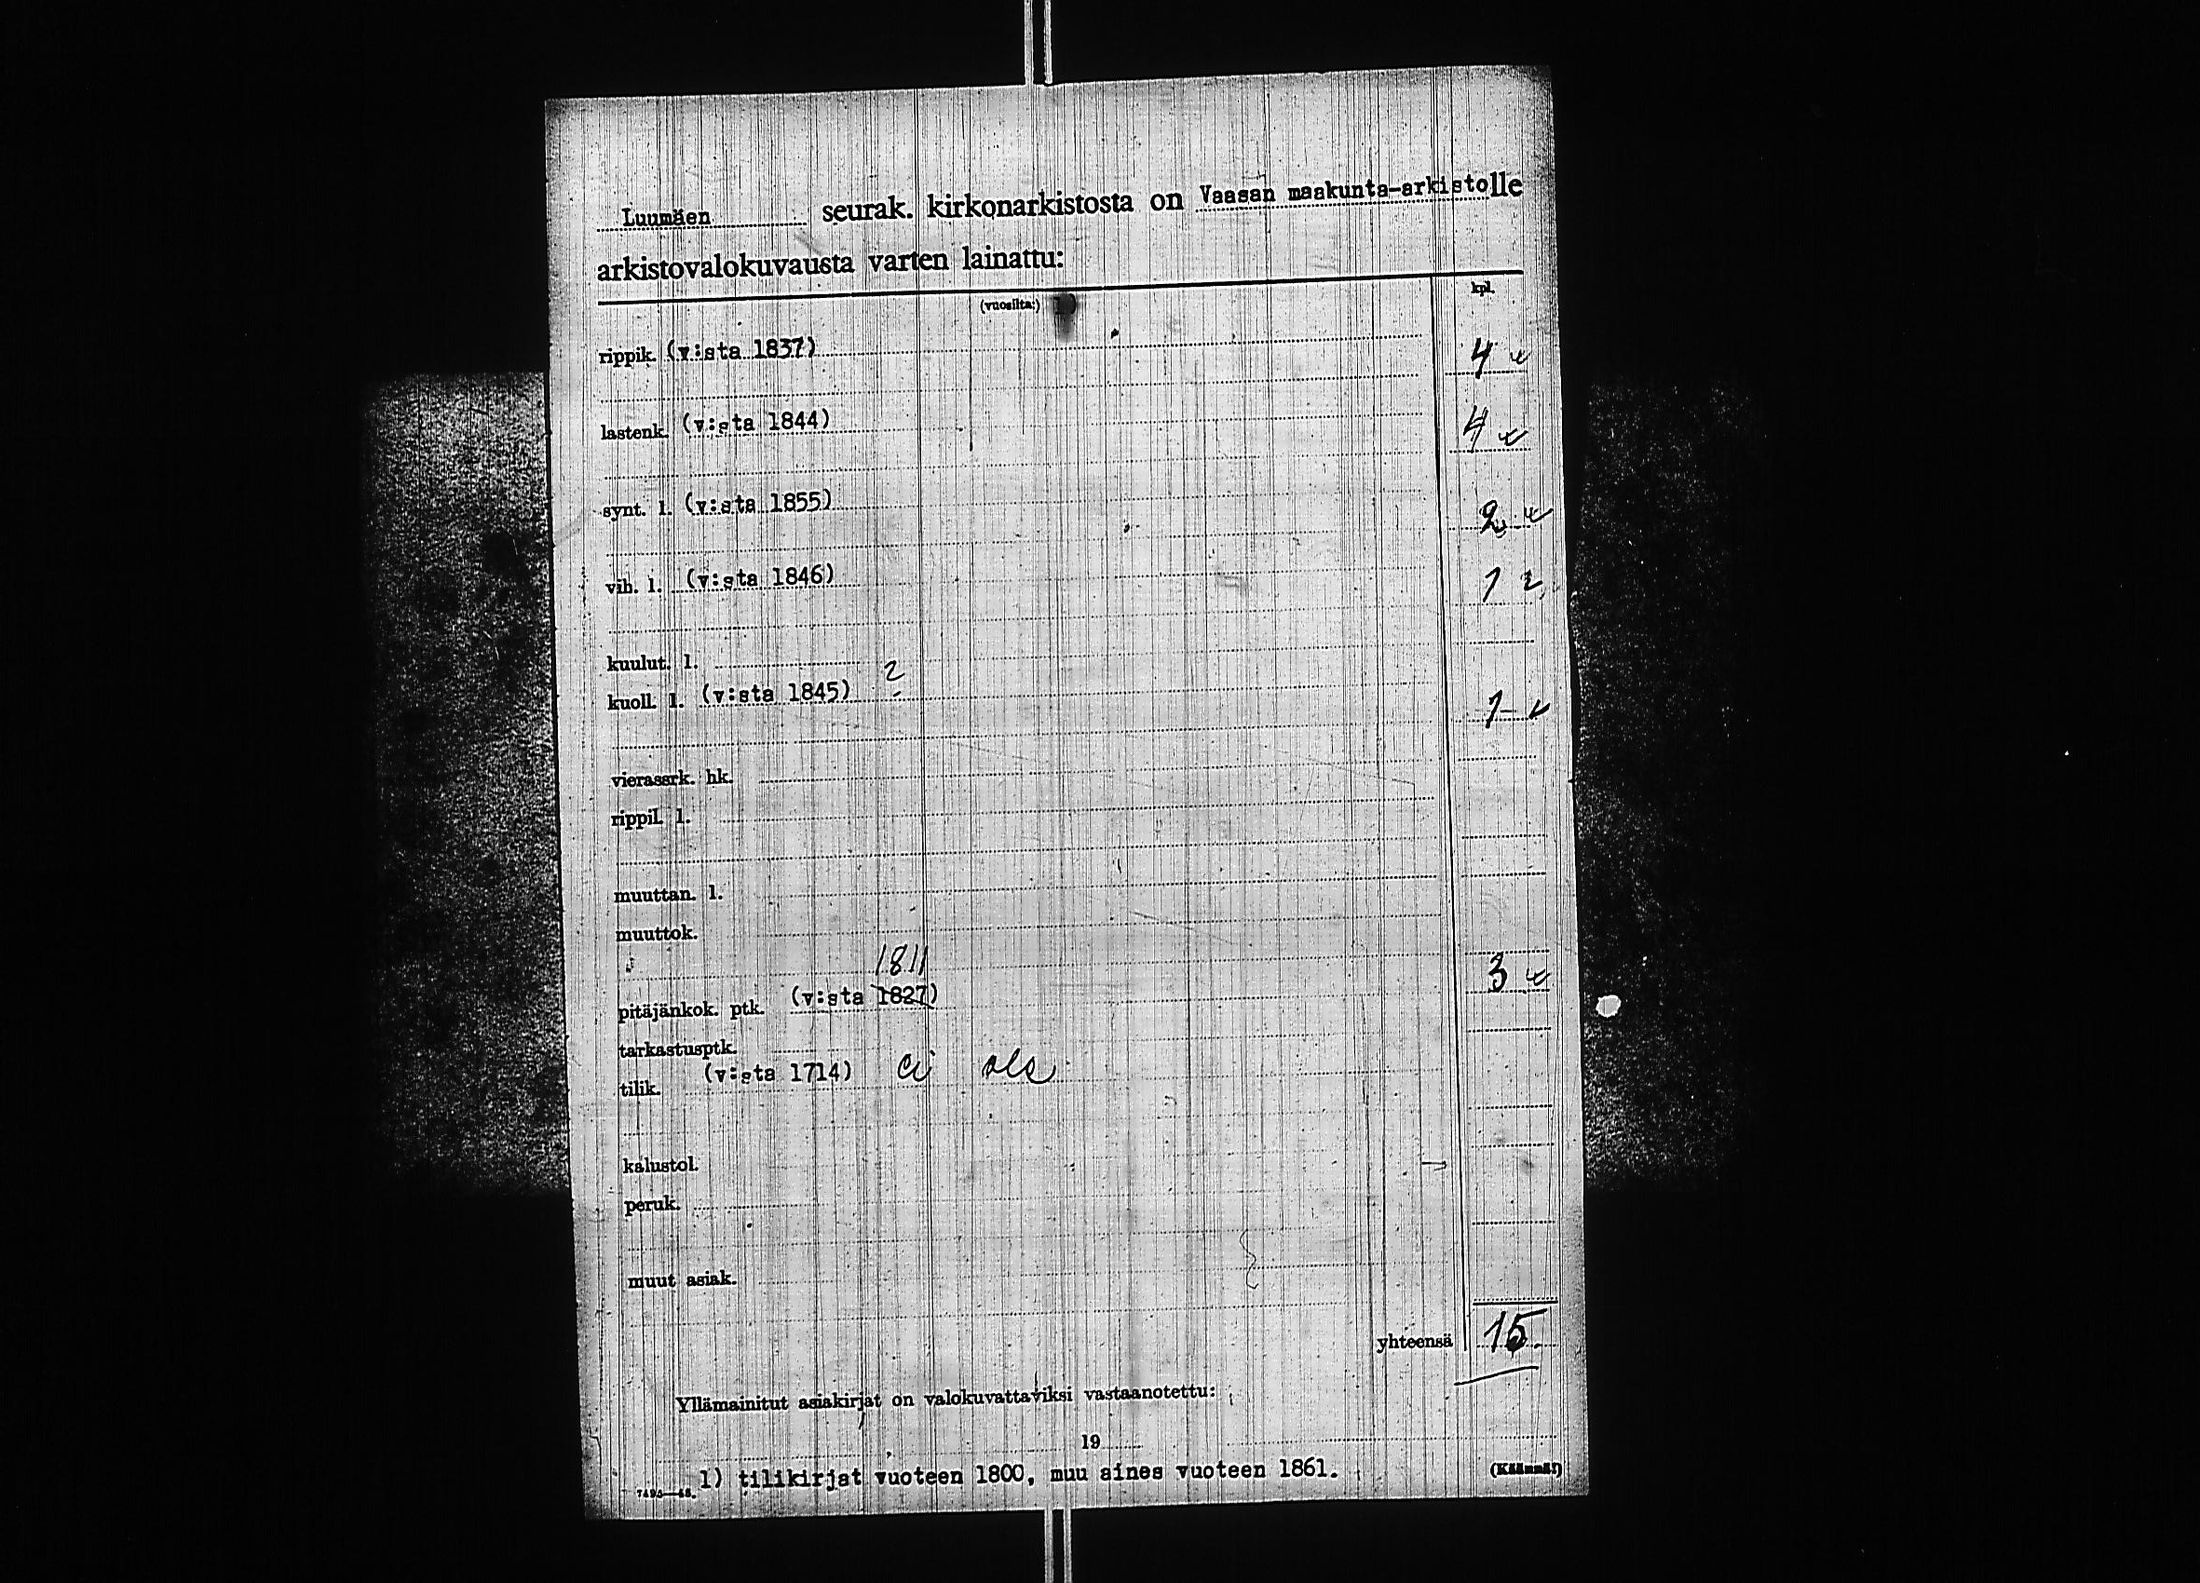 Luumäen seurak. kirkonarkistosta on Vaasan maakunta-arkistolle
arkistovalokuvausta varten lainattu:
(vuosilta:) kpl.
rippik. (v:sta 1837) 4
lastenk. (v:sta 1844) 4
synt. l. (v:sta 1855) 2
vih. l. (v:sta 1846) 1
kuulut. l.
kuoll. l. (v:sta 1845) ? 1
vierassrk. hk.
rippil. l.
muuttan. l.
muuttok.
1811
pitäjänkok. ptk. (v:sta 1827) 3
tarkastusptk.
tilik. (v:sta 1714) ei ole
kalustol.
peruk.
muut asiak.
yhteensä 15.
Yllämainitut asiakirjat on valokuvattaviksi vastaanotettu:
19
1) tilikirjat vuoteen 1800, muu aines vuoteen 1861.
(Käännä!)